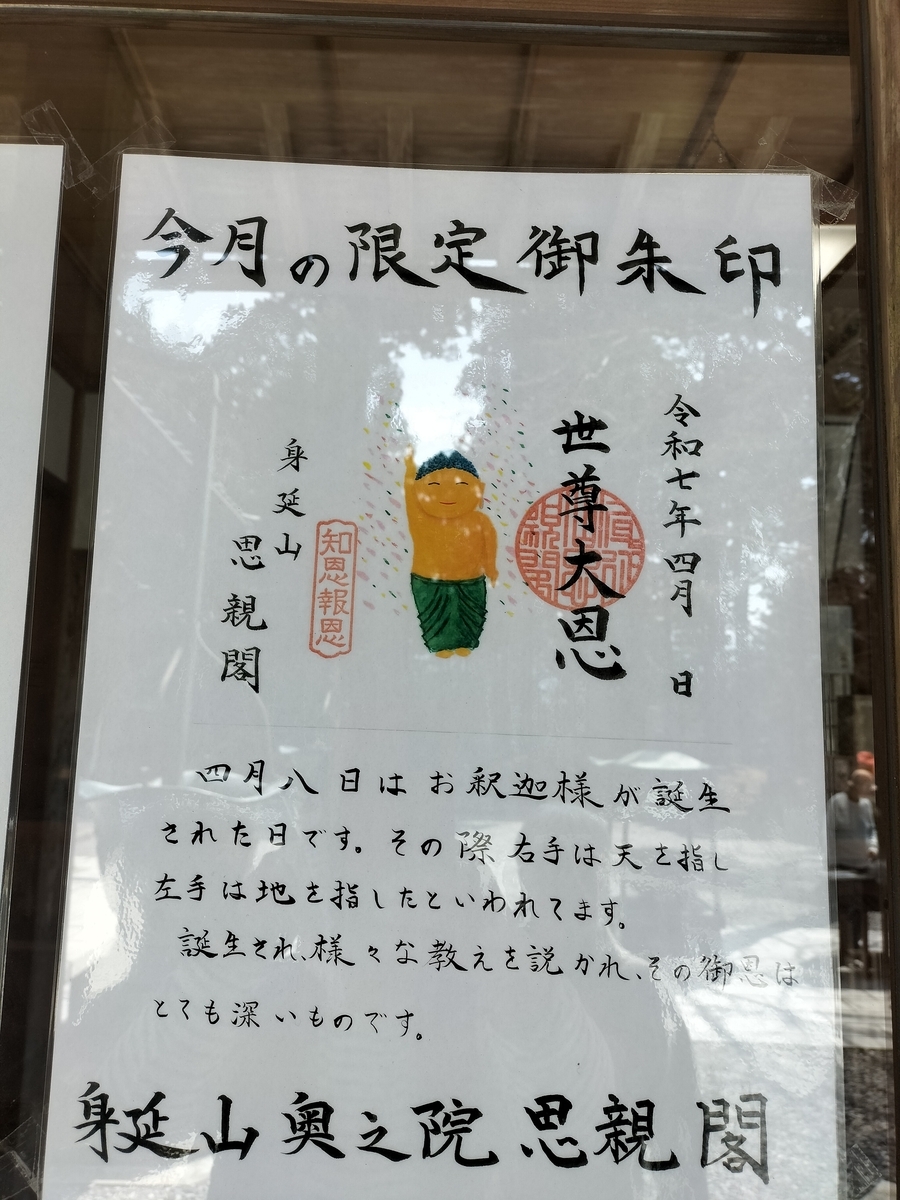 今月の限定御朱印
令和七年四月 日
世尊大恩
知恩報恩
身延山
思親閣
四月八日はお釈迦様が誕生
された日です。その際右手は天を指し
左手は地を指したといわれてます。
誕生され、様々な教えを説かれ、その御恩は
とても深いものです。
身延山奥之院思親閣